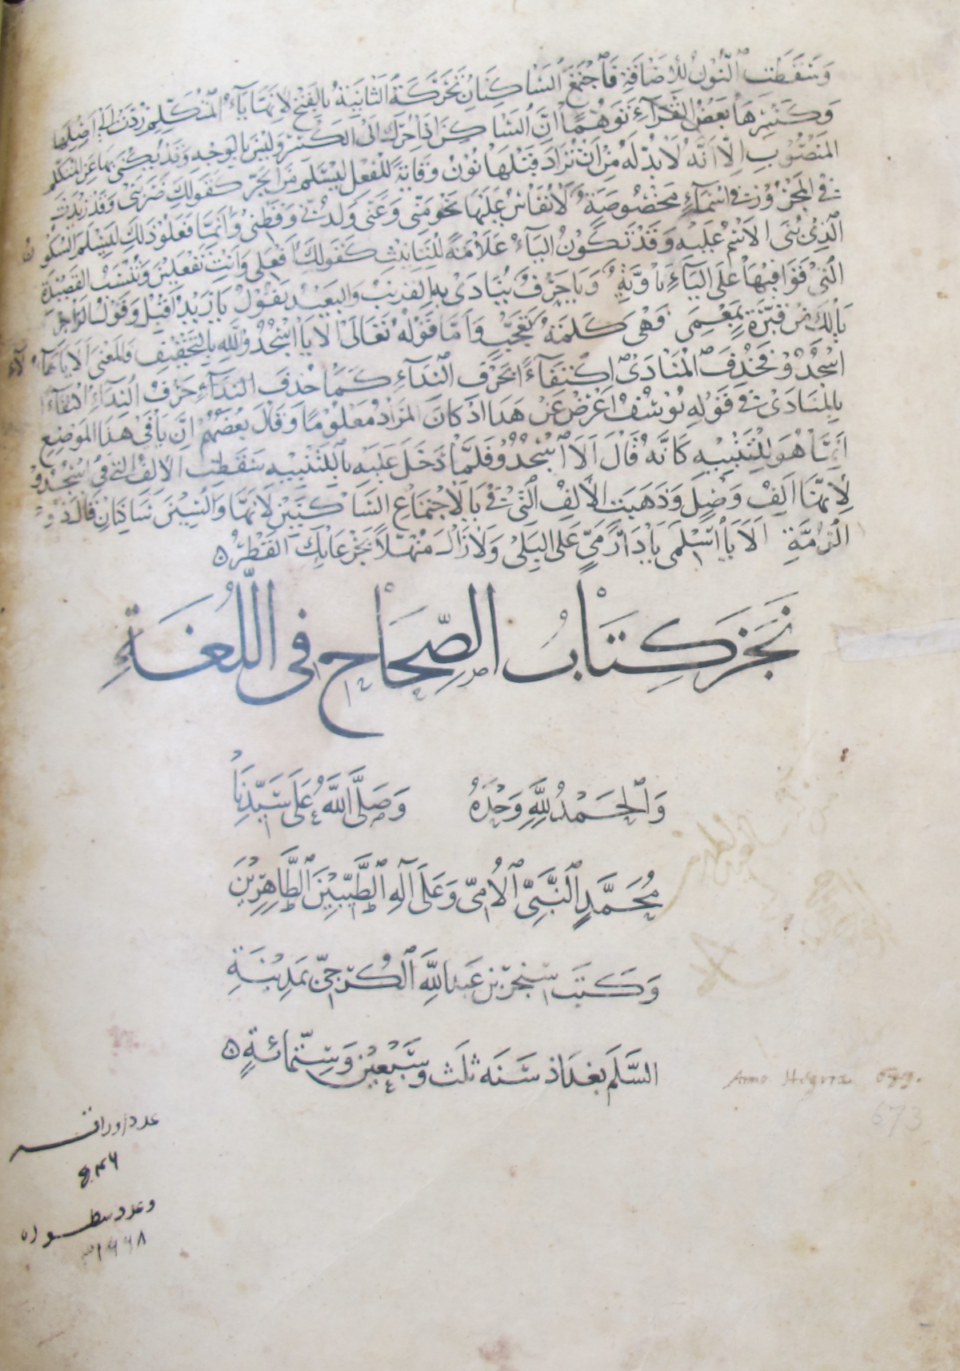 وَسَقَطَت النُّون للإضَافَةِ فَاجْتَمَعَ السَّاكِنَانِ فَحُرِّكَت الثَّانِيَةُ بِالفَتْحِ لأنَّهَا يَاءُ المُتَكَلِّمِ رُدَّتْ إلى أصْلِهَا
وَكَسَرَهَا بَعْضُ القُرَّاءِ تَوَهُّمًا أنَّ السَّاكِنَ إذَا حُرِّكَ حُرِّكَ إلى الكَسْرِ وَلَيْسَ بِالوَجْهِ وَقَدْ يُكْنَى بِهَا عَنِ المُتَكَلِّمِ
المَنْصُوبِ إلا أنَّهُ لَا بُدَّ لَهُ مِنْ أنْ تُزَادَ قَبْلَهَا نُونُ وِقَايَةٍ لِلْفِعْلِ لِيَسْلَمَ مِنَ الجَرِّ كَقَوْلِكَ ضَرَبَنِي وَقَدْ زِيدَتْ
فِي المَجْرُورِ فِي أسْمَاءٍ مَخْصُوصَةٍ لَا يُقَاسُ عَلَيْهَا نَحْوُ مِنِّي وَعَنِّي وَلَدُنِّي وَقَطْنِي وَإنَّمَا فَعَلُوا ذَلِكَ لِيَسْلَمَ السُّكُونُ
الَّذِي بُنِيَ الاسْمُ عَلَيْهِ وَقَدْ تَكُونُ اليَاءُ عَلَامَةً لِلتَّأنِيثِ كَقَوْلِكَ افْعَلِي وَأنْتِ تَفْعَلِينَ وَتُنْسَبُ القَصِيدَةُ
الَّتِي قَوَافِيهَا عَلَى اليَاءِ يَاوِيَّةٌ وَيَا حَرْفٌ يُنَادَى بِهِ القَرِيبُ وَالبَعِيدُ تَقُولُ يَا زَيْدُ أقْبِلْ وَقَوْلُ الرَّاجِزِ
يَا لَكِ مِنْ قُبَّرَةٍ بِمَعْمَرِ فَهِيَ كَلِمَةُ تَعَجُّبٍ وَأمَّا قَوْلُهُ تَعَالَى ألَا يَا اسْجُدُوا لِلَّهِ بِالتَّخْفِيفِ فَالمَعْنَى ألَا يَا هَؤُلَاءِ
اسْجُدُوا فَحُذِفَ المُنَادَى اكْتِفَاءً بِحَرْفِ النِّدَاءِ كَمَا حُذِفَ حَرْفُ النِّدَاءِ اكْتِفَاءً
بِالمُنَادَى فِي قَوْلِهِ يُوسُفُ أعْرِضْ عَنْ هَذَا إذْ كَانَ المُرَادُ مَعْلُومًا وَقَالَ بَعْضُهُمْ إنَّ يَا فِي هَذَا المَوْضِعِ
إنَّمَا هُوَ لِلتَّنْبِيهِ كَأنَّهُ قَالَ ألَا اسْجُدُوا فَلَمَّا دَخَلَ عَلَيْهِ يَا لِلتَّنْبِيهِ سَقَطَت الألِفُ الَّتِي فِي اسْجُدُوا
لِأنَّهَا ألِفُ وَصْلٍ وَذَهَبَت الألِفُ الَّتِي فِي يَا لِاجْتِمَاعِ السَّاكِنَيْنِ لِأنَّهَا وَالسِّينَ سَاكِنَانِ قَالَ ذُو
الرُّمَّةِ ألَا يَا اسْلَمِي يَا دَارَ مَيٍّ عَلَى البِلَى وَلَا زَالَ مُنْهَلًّا بِجَرْعَائِكِ القَطْرُ ه
نَجَزَ كِتَابُ الصِّحَاحِ فِي اللُّغَةِ
وَالحَمْدُ لِلَّهِ وَحْدَهُ وَصَلَّى اللَّهُ عَلَى سَيِّدِنَا
مُحَمَّدٍ النَّبِيِّ الأُمِّيِّ وَعَلَى آلِهِ الطَّيِّبِينَ الطَّاهِرِينَ
وَكَتَبَ سنجر بن عبد اللَّهِ الكرجي بِمَدِينَةِ
السَّلَم بَغْدَاذ سَنَة ثَلَث وَسَبْعِين وَسِتّمِائَةٍ ه
Anno Hegira 699.
673
عدد اوراقه
٤٤٦
وعدد سطوره